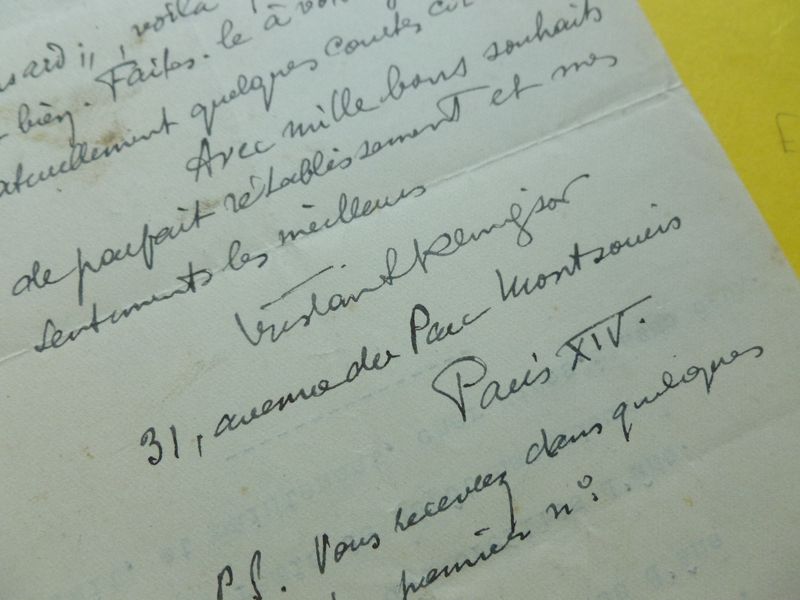 voilà
bien. Faites-le à
quelques courtes
Avec mille bons souhaits
de parfait rétablissement et mes
sentiments les meilleurs
Tristan Klingsor
31, avenue du Parc Montsouris
Paris XIV.
P.S. Vous recevrez dans quelques
premier n°.